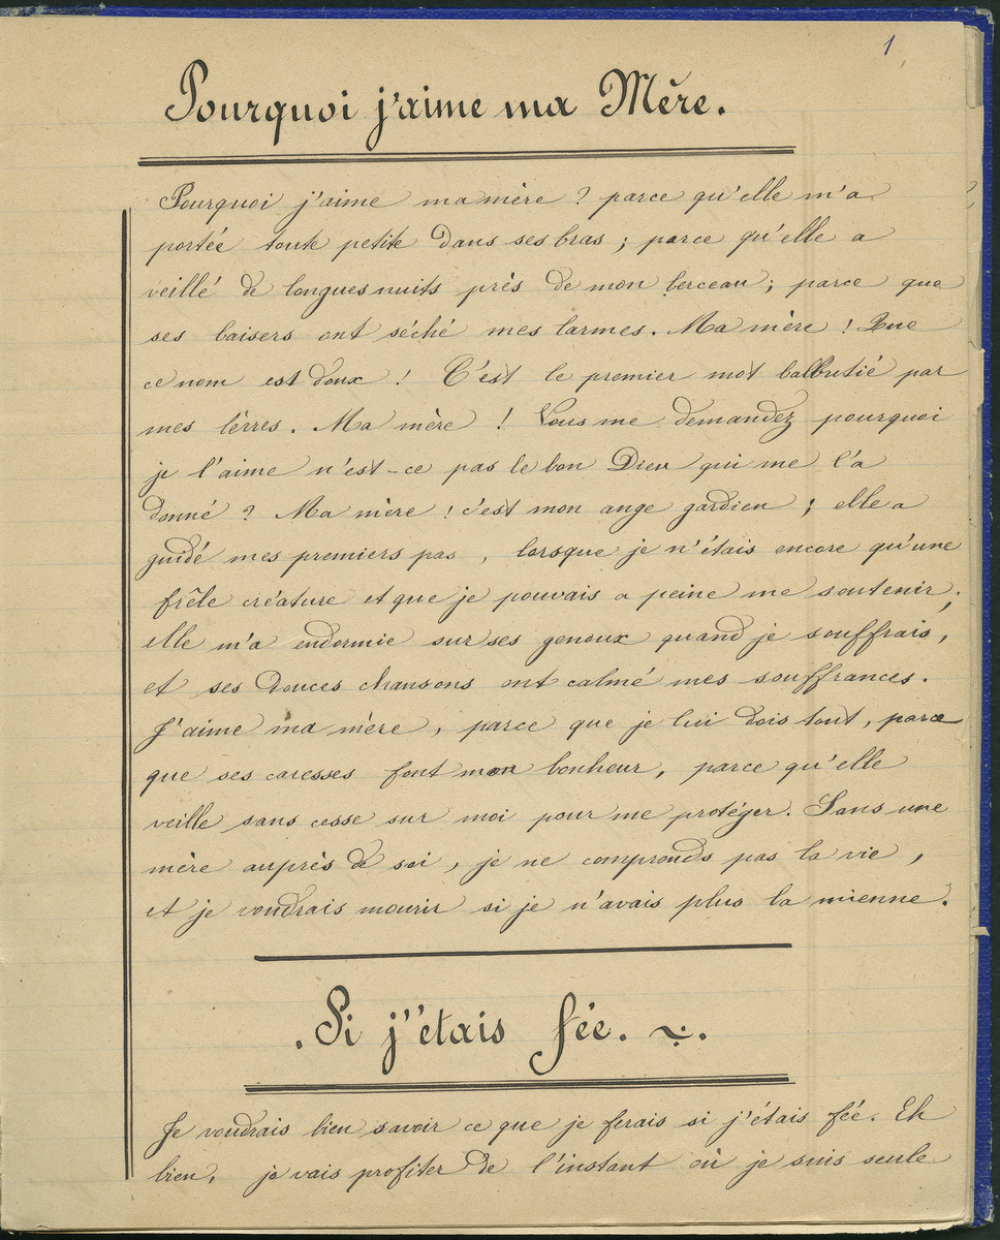 1
Pourquoi j'aime ma Mère.
Pourquoi j'aime ma mère ? parce qu'elle m'a
portée toute petite dans ses bras ; parce qu'elle a
veillé de longues nuits près de mon berceau ; parce que
ses baisers ont séché mes larmes. Ma mère ! Que
ce nom est doux ! C'est le premier mot balbutié par
mes lèvres. Ma mère ! Vous me demandez pourquoi
je l'aime n'est-ce pas le bon Dieu qui me l'a
donné ? Ma mère ! c'est mon ange gardien ; elle a
guidé mes premiers pas, lorsque je n'étais encore qu'une
frêle créature et que je pouvais a peine me soutenir ;
elle m'a endormie sur ses genoux quand je souffrais,
et ses douces chansons ont calmé mes souffrances.
J'aime ma mère, parce que je lui dois tout, parce
que ses caresses font mon bonheur, parce qu'elle
veille sans cesse sur moi pour me protéger. Sans une
mère auprès de soi, je ne comprends pas la vie,
et je voudrais mourir si je n'avais plus la mienne.
Si j'étais fée.
Je voudrais bien savoir ce que je ferais si j'étais fée. Eh
bien, je vais profiter de l'instant où je suis seule